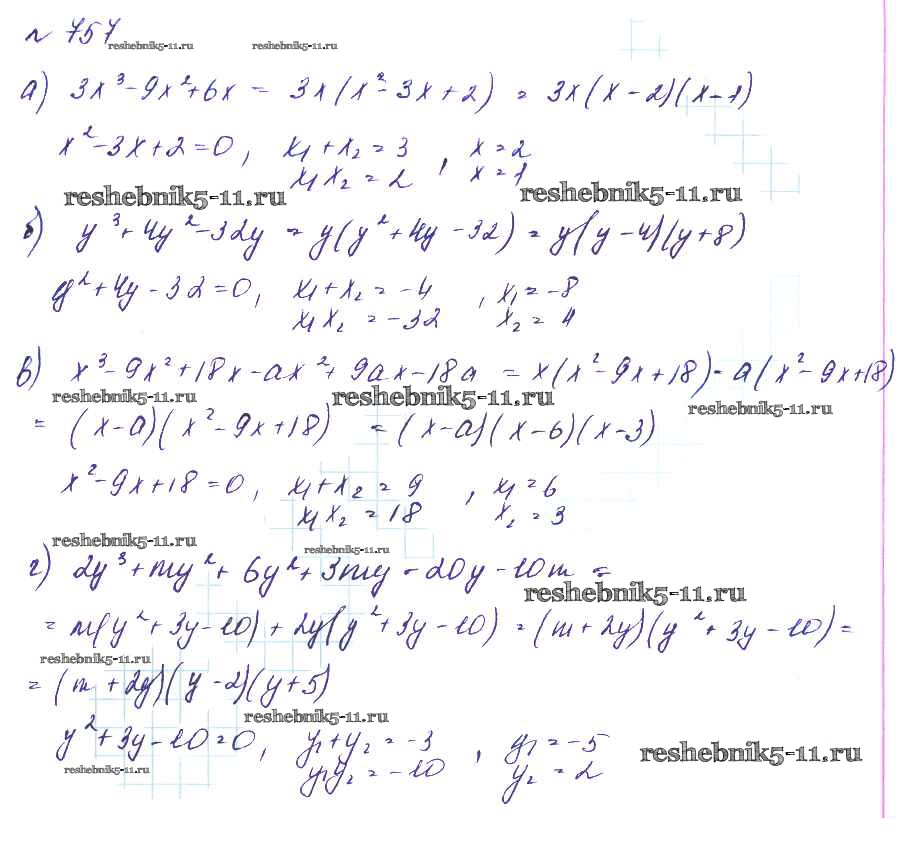 № 757
reshebnik5-11.ru reshebnik5-11.ru
а) 3x³-9x²+6x = 3x(x²-3x+2) = 3x(x-2)(x-1)
x²-3x+2=0, x₁+x₂=3, x=2
x₁x₂=2 x=1
reshebnik5-11.ru reshebnik5-11.ru
б) y³+4y²-32y = y(y²+4y-32) = y(y-4)(y+8)
y²+4y-32=0, x₁+x₂=-4, x₁=-8
x₁x₂=-32 x₂=4
в) x³-9x²+18x-ax²+9ax-18a = x(x²-9x+18)-a(x²-9x+18)
reshebnik5-11.ru reshebnik5-11.ru reshebnik5-11.ru
= (x-a)(x²-9x+18) = (x-a)(x-6)(x-3)
x²-9x+18=0, x₁+x₂=9, x₁=6
x₁x₂=18 x₂=3
reshebnik5-11.ru reshebnik5-11.ru
г) 2y³+my²+6y²+3my-20y-10m =
reshebnik5-11.ru
= m(y²+3y-10)+2y(y²+3y-10) = (m+2y)(y²+3y-10) =
reshebnik5-11.ru
= (m+2y)(y-2)(y+5)
reshebnik5-11.ru
y²+3y-10=0, y₁+y₂=-3, y₁=-5
y₁y₂=-10 y₂=2
reshebnik5-11.ru reshebnik5-11.ru